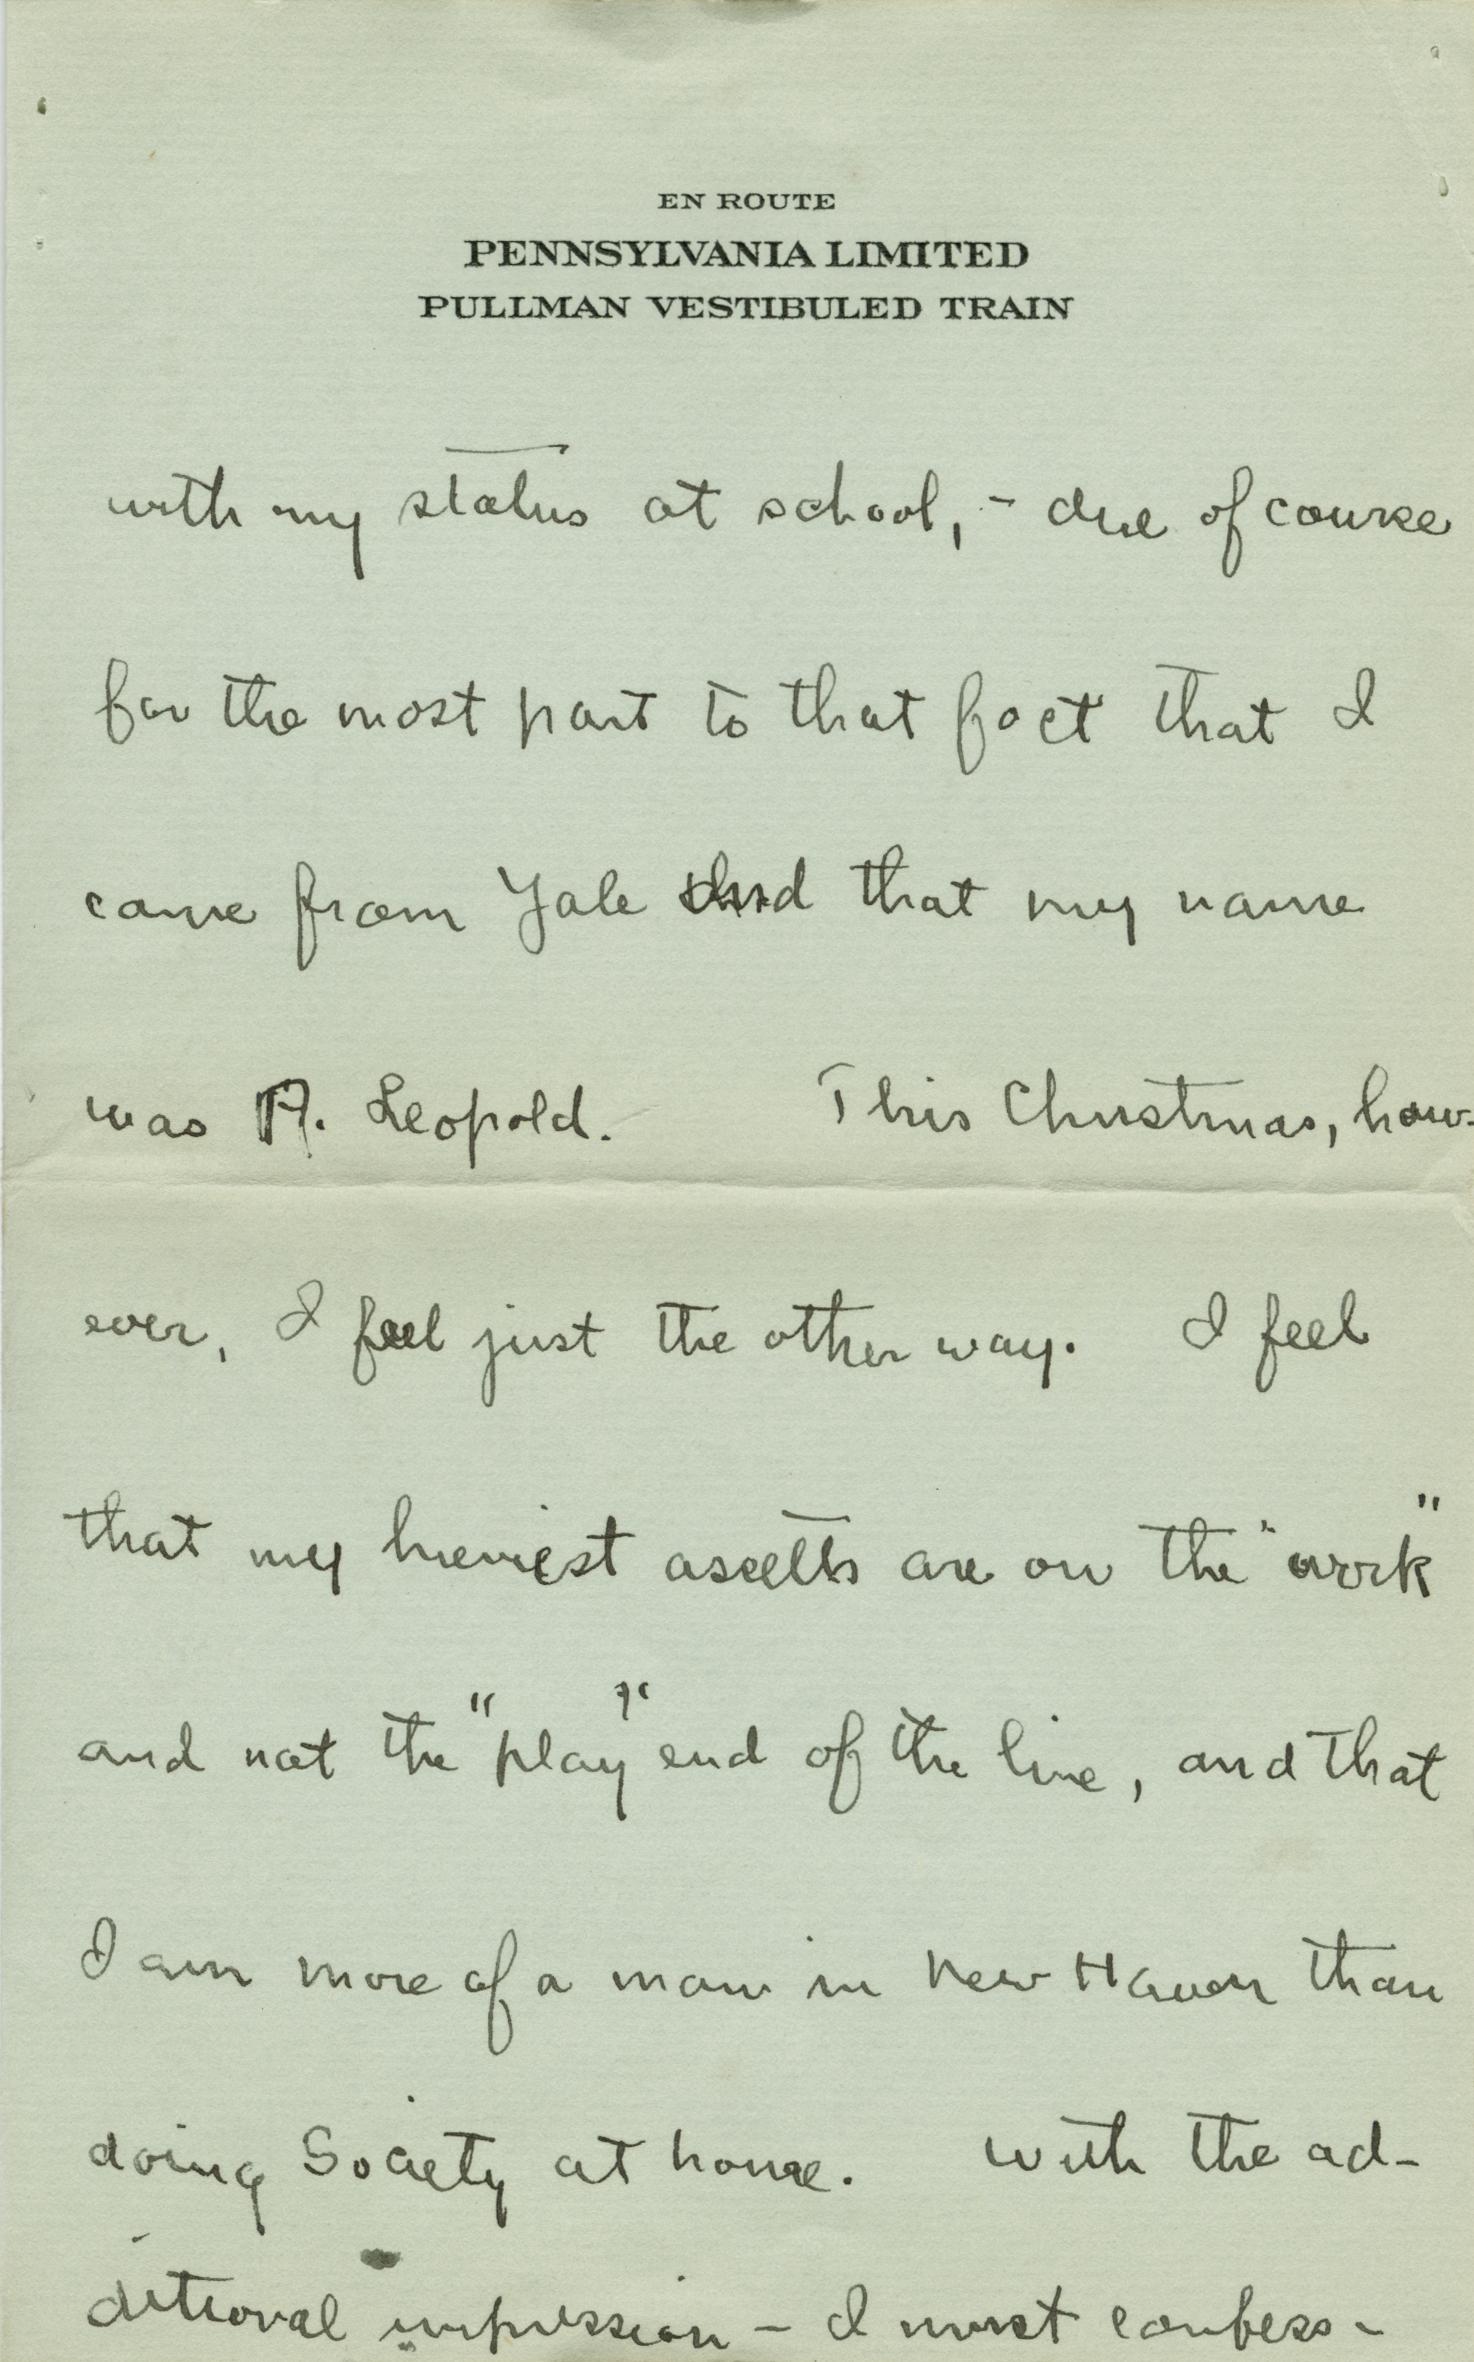 EN ROUTE
PENNSYLVANIA LIMITED
PULLMAN VESTIBULED TRAIN
with my status at school, - due of course
for the most part to that fact that I
came from Yale and that my name
was A. Leopold. This Christmas, how-
ever, I feel just the other way. I feel
that my are on the "work"
and not the "play" end of the line, and that
I am more of a man in New Haven than
doing Society at home. With the ad-
ditional impression - I must confess -